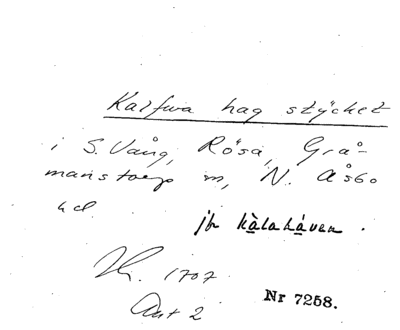 Kalfwa hag stÿcket
i S. Vång, Rösa, Grå-
manstorp sn, N. Åsbo
hd
jfr kàlahávan.
1707
Akt 2
Nr 7258.